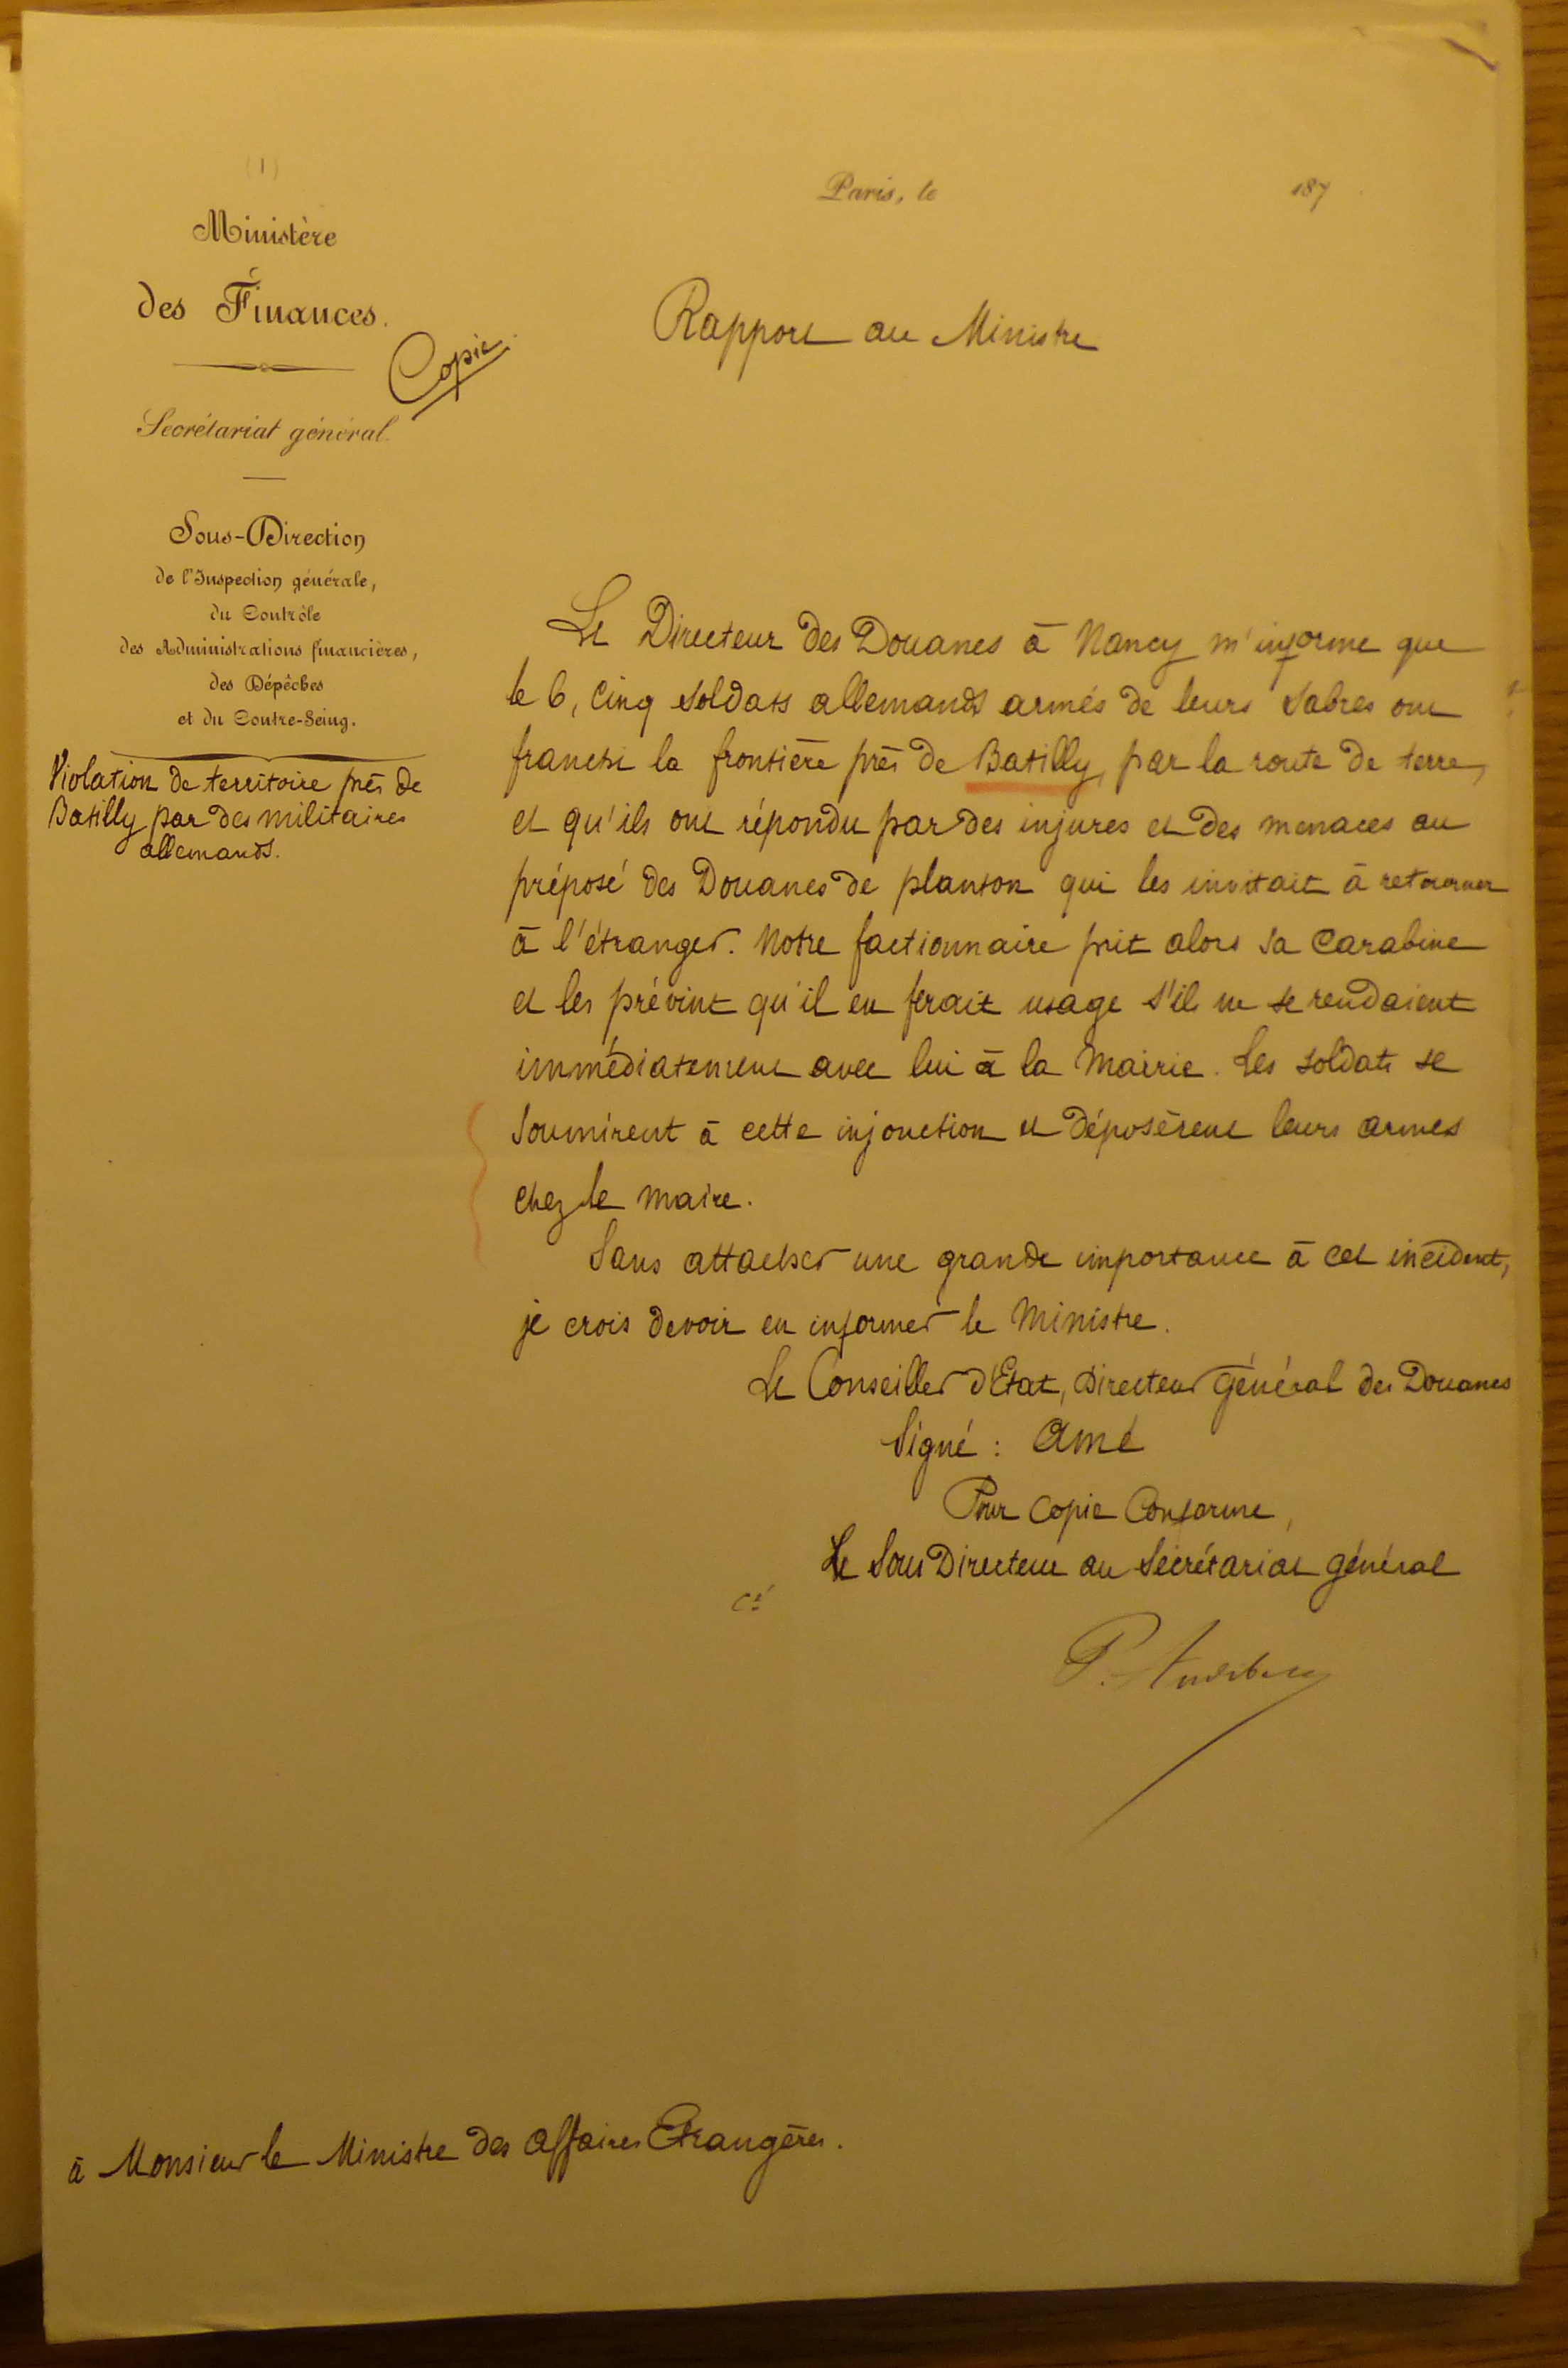 (1)
Ministère
des Finances.
Copie.
Secrétariat général.
Sous-Direction
de l'Inspection générale,
du Contrôle
des Administrations financières,
des Dépêches
et du Contre-Seing.
Violation de territoire près de
Batilly par des militaires
allemands.
Paris, le 187
Rapport au Ministre
Le Directeur des Douanes à Nancy m'informe que
le 6, cinq soldats allemands armés de leurs sabres ont
franchi la frontière près de Batilly, par la route de terre,
et qu'ils ont répondu par des injures et des menaces au
préposé des Douanes de planton qui les invitait à retourner
à l'étranger. Notre factionnaire prit alors sa carabine
et les prévint qu'il en ferait usage s'il ne se rendaient
immédiatement avec lui à la Mairie. Les soldats se
soumirent à cette injonction et déposèrent leurs armes
chez le maire.
Sans attacher une grande importance à cet incident,
je crois devoir en informer le Ministre.
Le Conseiller d'Etat, Directeur Général des Douanes
Signé : Amé
Pour Copie Conforme,
Le Sous Directeur au Secrétariat général
P.
à Monsieur le Ministre des Affaires Etrangères.